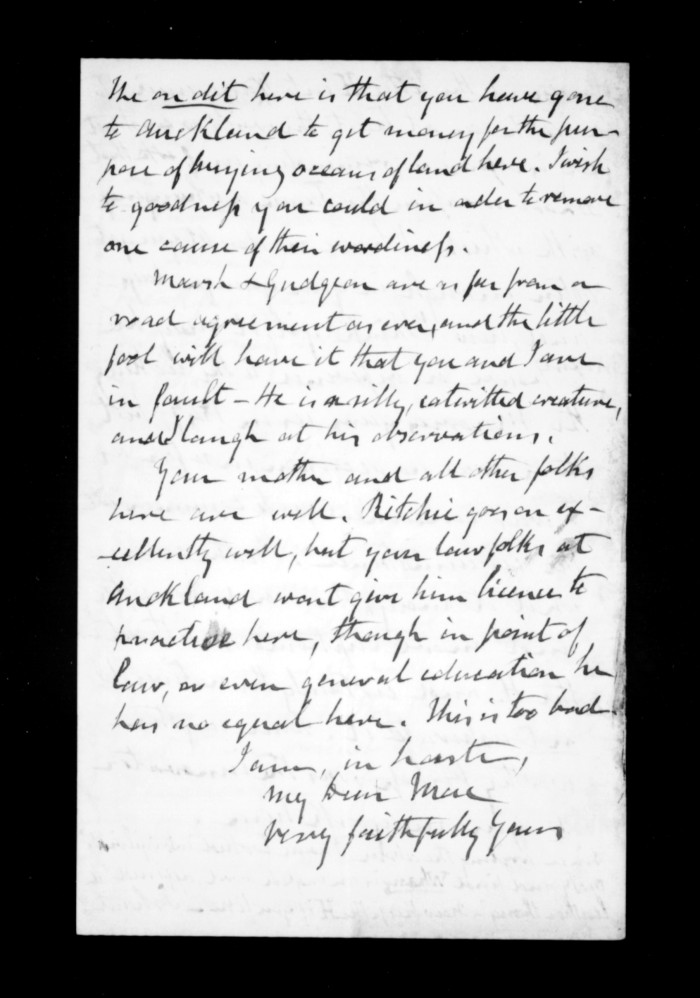 The on dit here is that you have gone
to Auckland to get money for the pur-
pose of buying oceans of land here. I wish
to goodness you could in order to remove
one cause of their woodiness.
Marsh & Gudgeon are as far from a
road agreement as ever, and the little
fool will have it that you and I are
in fault - He is a silly, catwitted creature,
and I laugh at his observations.
Your mother and all other folks
here are well. Ritchie goes on ex-
-cellently well, but your law folks at
Auckland wont give him licence to
practise here, though in point of
law, or even general education he
has no equal here. This is too bad
I am, in haste,
My Dear Mac
very faithfully yours